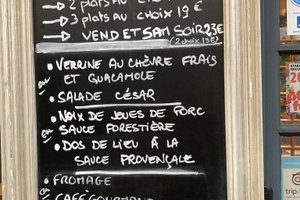 → 2 plats au choix
→ 3 plats au choix 19 €
→ VEND ET SAM SOIR 23€
(2 choix 19€)
• VERRINE AU CHÈVRE FRAIS
ET GUACAMOLE
ou
• SALADE CÉSAR
• NOIX DE JOUES DE PORC
SAUCE FORESTIÈRE
ou
• DOS DE LIEU À LA
SAUCE PROVENÇALE
• FROMAGE
ou
• CAFÉ GOURMAND
trip